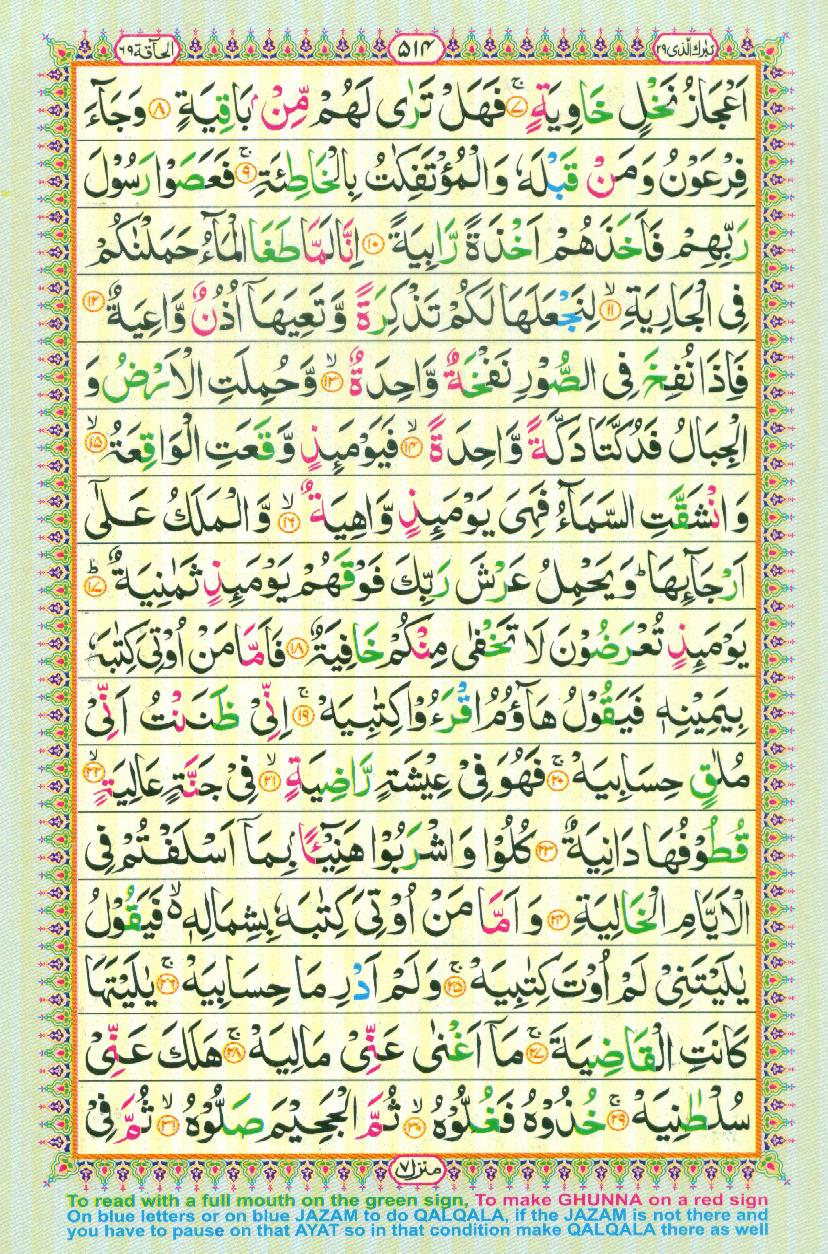 تبٰرك الذی ۲۹
۵۱۴
الحآقة ۶۹
اَعْجَازُ نَخْلٍ خَاوِيَةٍ ۷ فَهَلْ تَرٰى لَهُمْ مِّنْۢ بَاقِيَةٍ ۸ وَجَآءَ
فِرْعَوْنُ وَمَنْ قَبْلَهٗ وَالْمُؤْتَفِكٰتُ بِالْخَاطِئَةِ ۹ فَعَصَوْا رَسُوْلَ
رَبِّهِمْ فَاَخَذَهُمْ اَخْذَةً رَّابِيَةً ۱۰ اِنَّا لَمَّا طَغَا الْمَآءُ حَمَلْنٰكُمْ
فِى الْجَارِيَةِ ۱۱ لِنَجْعَلَهَا لَكُمْ تَذْكِرَةً وَّتَعِيَهَاۤ اُذُنٌ وَّاعِيَةٌ ۱۲
فَاِذَا نُفِخَ فِى الصُّوْرِ نَفْخَةٌ وَّاحِدَةٌ ۱۳ وَّحُمِلَتِ الْاَرْضُ وَ
الْجِبَالُ فَدُكَّتَا دَكَّةً وَّاحِدَةً ۱۴ فَيَوْمَئِذٍ وَّقَعَتِ الْوَاقِعَةُ ۱۵
وَانْشَقَّتِ السَّمَآءُ فَهِىَ يَوْمَئِذٍ وَّاهِيَةٌ ۱۶ وَّالْمَلَكُ عَلٰٓى
اَرْجَآئِهَا ؕ وَيَحْمِلُ عَرْشَ رَبِّكَ فَوْقَهُمْ يَوْمَئِذٍ ثَمٰنِيَةٌ ۱۷
يَوْمَئِذٍ تُعْرَضُوْنَ لَا تَخْفٰى مِنْكُمْ خَافِيَةٌ ۱۸ فَاَمَّا مَنْ اُوْتِىَ كِتٰبَهٗ
بِيَمِيْنِهٖ فَيَقُوْلُ هَآؤُمُ اقْرَءُوْا كِتٰبِيَهْ ۱۹ اِنِّىْ ظَنَنْتُ اَنِّىْ
مُلٰقٍ حِسَابِيَهْ ۲۰ فَهُوَ فِىْ عِيْشَةٍ رَّاضِيَةٍ ۲۱ فِىْ جَنَّةٍ عَالِيَةٍ ۲۲
قُطُوْفُهَا دَانِيَةٌ ۲۳ كُلُوْا وَاشْرَبُوْا هَنِيْٓئًا بِمَاۤ اَسْلَفْتُمْ فِى
الْاَيَّامِ الْخَالِيَةِ ۲۴ وَاَمَّا مَنْ اُوْتِىَ كِتٰبَهٗ بِشِمَالِهٖ ۙ فَيَقُوْلُ
يٰلَيْتَنِىْ لَمْ اُوْتَ كِتٰبِيَهْ ۲۵ وَلَمْ اَدْرِ مَا حِسَابِيَهْ ۲۶ يٰلَيْتَهَا
كَانَتِ الْقَاضِيَةَ ۲۷ مَاۤ اَغْنٰى عَنِّىْ مَالِيَهْ ۲۸ هَلَكَ عَنِّىْ
سُلْطٰنِيَهْ ۲۹ خُذُوْهُ فَغُلُّوْهُ ۳۰ ثُمَّ الْجَحِيْمَ صَلُّوْهُ ۳۱ ثُمَّ فِىْ
منزل ۷
To read with a full mouth on the green sign, To make GHUNNA on a red sign
On blue letters or on blue JAZAM to do QALQALA, if the JAZAM is not there and
you have to pause on that AYAT so in that condition make QALQALA there as well